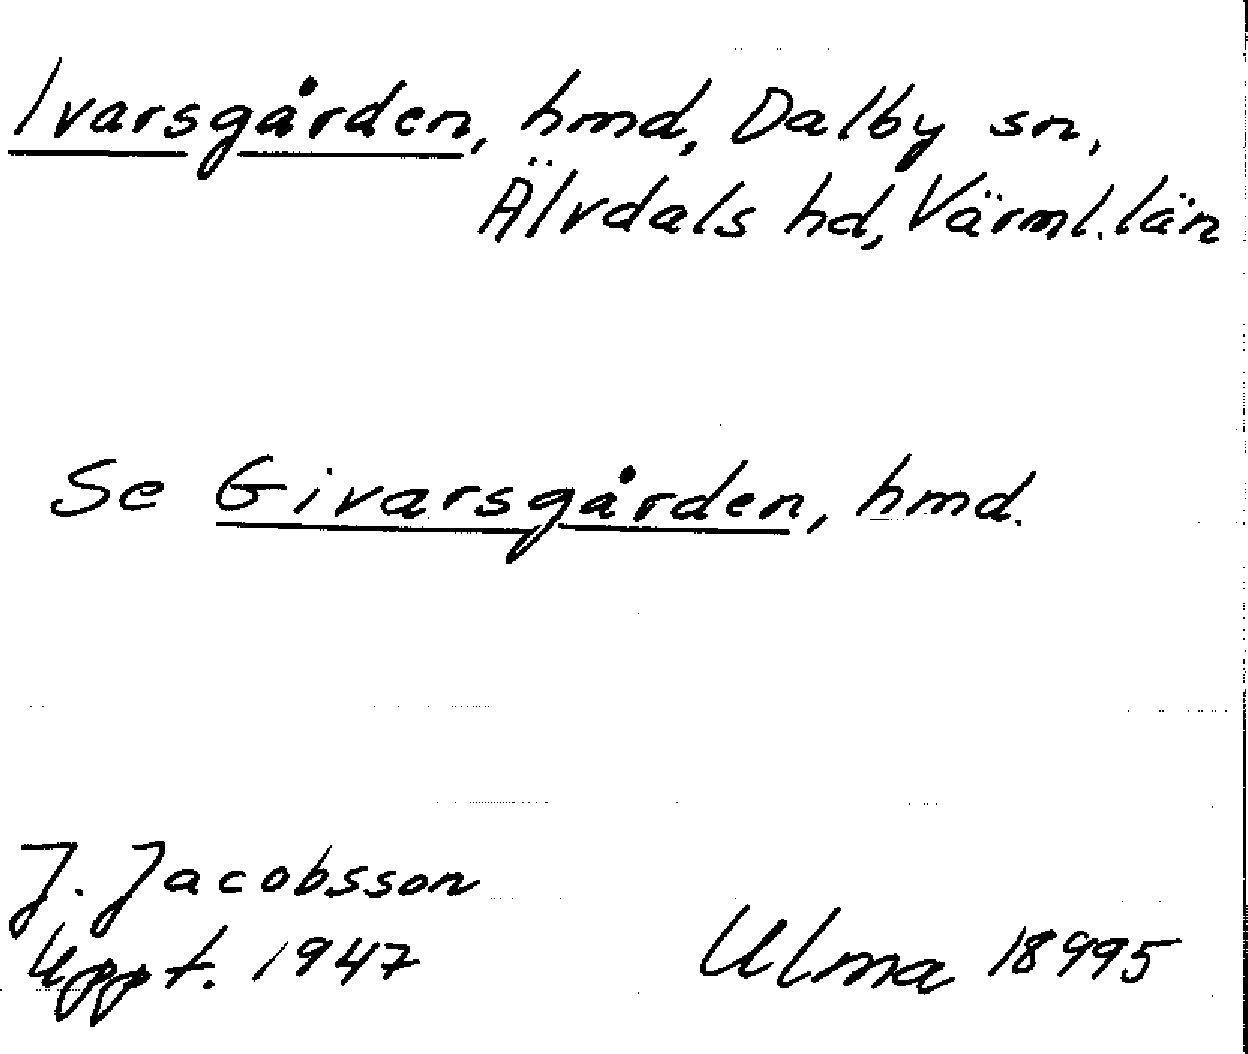 Ivarsgården, hmd, Dalby sn,
Älvdals hd, Värml. län
Se Givarsgården, hmd.
J. Jacobsson
Uppt. 1947
Ulma 18995